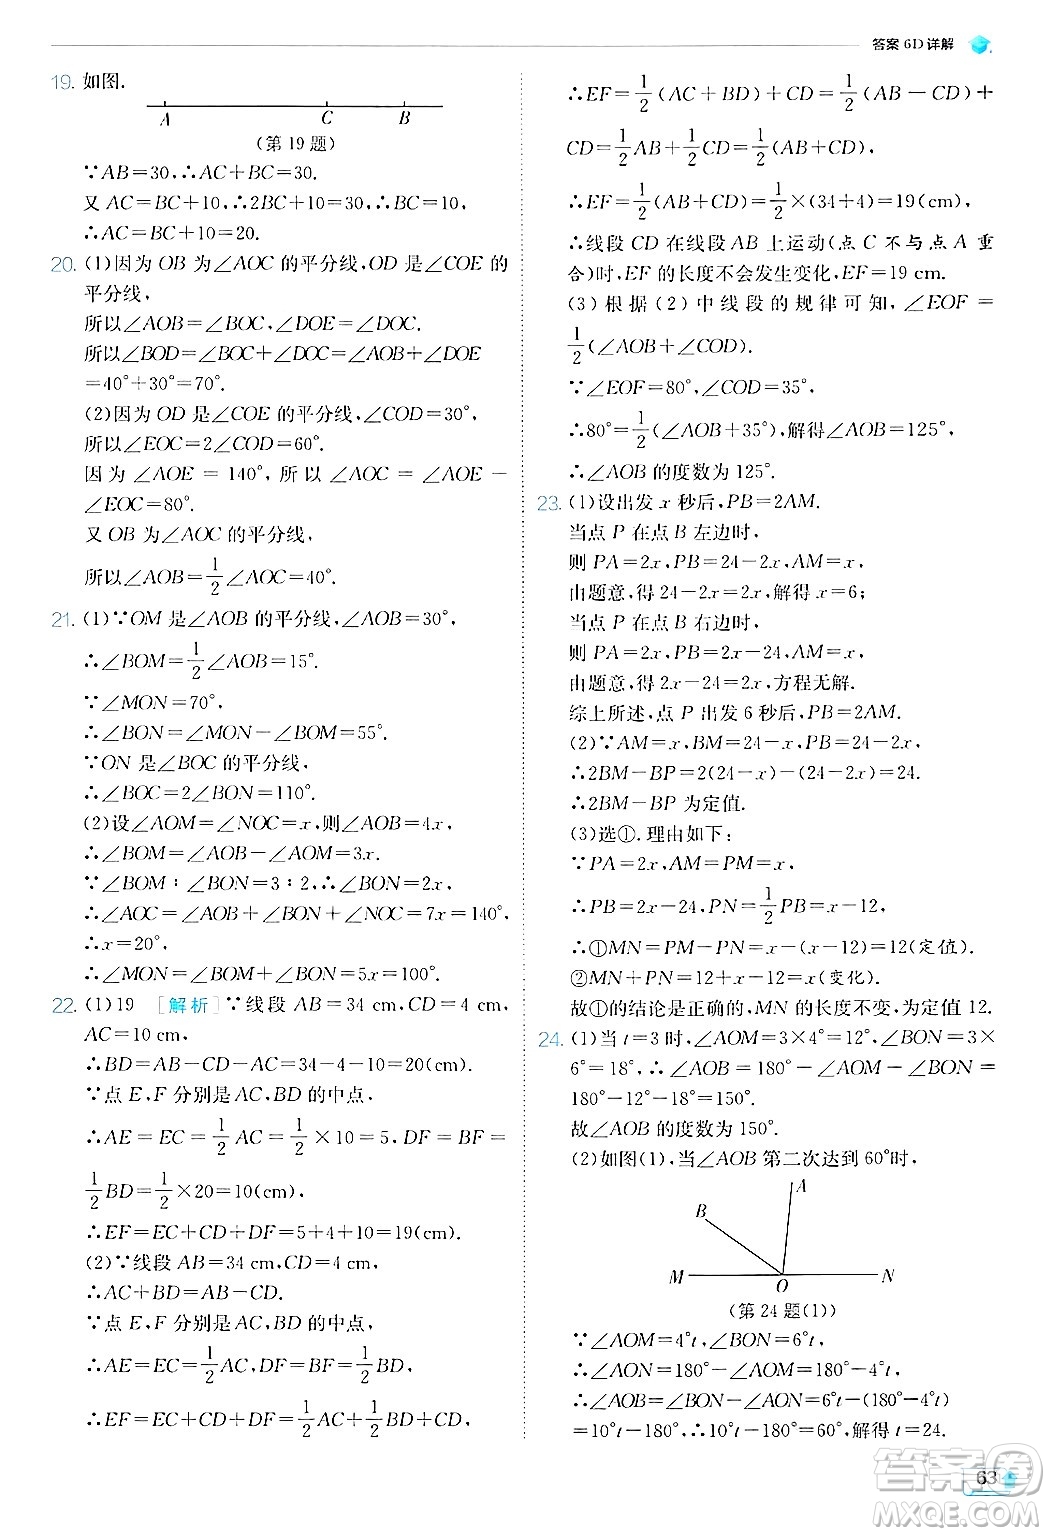 答案 6D 详解
19. 如图.
A C B
(第 19 题)
∵AB=30,∴AC+BC=30.
又 AC=BC+10,∴2BC+10=30,∴BC=10,
∴AC=BC+10=20.
20. (1)因为 OB 为∠AOC 的平分线,OD 是∠COE 的
平分线,
所以∠AOB=∠BOC,∠DOE=∠DOC.
所以∠BOD=∠BOC+∠DOC=∠AOB+∠DOE
=40°+30°=70°.
(2)因为 OD 是∠COE 的平分线,∠COD=30°,
所以∠EOC=2∠COD=60°.
因为∠AOE = 140°, 所以 ∠AOC = ∠AOE -
∠EOC=80°.
又 OB 为∠AOC 的平分线,
所以∠AOB=1/2∠AOC=40°.
21. (1)∵OM 是∠AOB 的平分线,∠AOB=30°,
∴∠BOM=1/2∠AOB=15°.
∵∠MON=70°,
∴∠BON=∠MON-∠BOM=55°.
∵ON 是∠BOC 的平分线,
∴∠BOC=2∠BON=110°.
(2)设∠AOM=∠NOC=x,则∠AOB=4x,
∴∠BOM=∠AOB-∠AOM=3x.
∵∠BOM∶∠BON=3∶2,∴∠BON=2x,
∴∠AOC=∠AOB+∠BON+∠NOC=7x=140°,
∴x=20°,
∴∠MON=∠BOM+∠BON=5x=100°.
22. (1)19 [解析] ∵线段 AB=34 cm,CD=4 cm,
AC=10 cm,
∴BD=AB-CD-AC=34-4-10=20(cm).
∵点 E,F 分别是AC,BD 的中点,
∴AE=EC=1/2 AC=1/2×10=5,DF=BF=
1/2BD=1/2×20=10(cm),
∴EF=EC+CD+DF=5+4+10=19(cm).
(2)∵线段 AB=34 cm,CD=4 cm,
∴AC+BD=AB-CD.
∵点 E,F 分别是AC,BD 的中点,
∴AE=EC=1/2AC,DF=BF=1/2BD,
∴EF=EC+CD+DF=1/2AC+1/2BD+CD,
∴EF=1/2(AC+BD)+CD=1/2(AB-CD)+
CD=1/2AB+1/2CD=1/2(AB+CD),
∴EF=1/2(AB+CD)=1/2×(34+4)=19(cm),
∴线段 CD 在线段 AB 上运动(点 C 不与点 A 重
合)时,EF 的长度不会发生变化,EF=19 cm.
(3)根据(2)中线段的规律可知,∠EOF=
1/2(∠AOB+∠COD).
∵∠EOF=80°,∠COD=35°,
∴80°=1/2(∠AOB+35°),解得∠AOB=125°,
∴∠AOB 的度数为 125°.
23. (1)设出发 x 秒后,PB=2AM.
当点 P 在点 B 左边时,
则 PA=2x,PB=24-2x,AM=x,
由题意,得 24-2x=2x,解得 x=6;
当点 P 在点 B 右边时,
则 PA=2x,PB=2x-24,AM=x,
由题意,得 2x-24=2x,方程无解.
综上所述,点 P 出发 6 秒后,PB=2AM.
(2)∵AM=x,BM=24-x,PB=24-2x,
∴2BM-BP=2(24-x)-(24-2x)=24.
∴2BM-BP 为定值.
(3)选①.理由如下:
∵PA=2x,AM=PM=x,
∴PB=2x-24,PN=1/2PB=x-12,
∴①MN=PM-PN=x-(x-12)=12(定值).
②MN+PN=12+x-12=x(变化).
故①的结论是正确的,MN 的长度不变,为定值 12.
24. (1)当 t=3 时,∠AOM=3×4°=12°,∠BON=3×
6°=18°,∴∠AOB=180°-∠AOM-∠BON=
180°-12°-18°=150°.
故∠AOB 的度数为 150°.
(2)如图(1),当∠AOB 第二次达到 60°时,
A
B
M O N
(第 24 题(1))
∵∠AOM=4°t,∠BON=6°t,
∴∠AON=180°-∠AOM=180°-4°t,
∴∠AOB=∠BON-∠AON=6°t-(180°-4°t)
=10°t-180°,∴10°t-180°=60°,解得 t=24.
63
答案圈
MXQE.COM